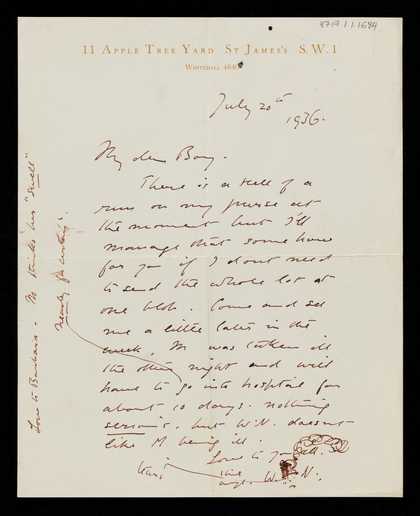 8717.1.1.1694
11 APPLE TREE YARD ST JAMES'S S.W.1
WHITEHALL
July 20th
1936.
My dear Boy.
There is a hell of a
run on my purse at
the moment but I'll
manage that some how
for you if I dont need
to send the whole lot at
one blob. Come and see
me a little later in the
week. M was taken ill
the other night and will
have to go into hospital for
about 10 days. nothing
serious. but W.N. doesnt
like M being ill.
Love to you all.
W. N.
Love to Barbara - M thinks her "swell"